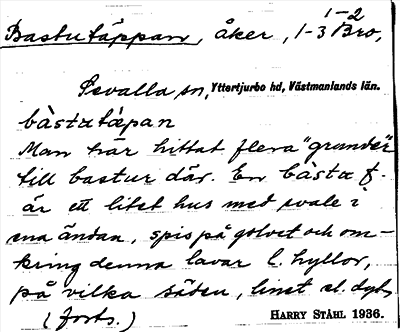 1-2
Bastutäppan, åker, 1-3 Bro,
Svalla sn, Yttertjurbo hd, Västmanlands län.
bàstutæpan
Man har hittat flera "grunder"
till bastur där. En bàstu f.
är ett litet hus med svale i
ena ändan, spis på golvet och om-
kring denna lavar l. hyllor,
på vilka säden, linet el. dyl.
(forts.) HARRY STÅHL 1936.